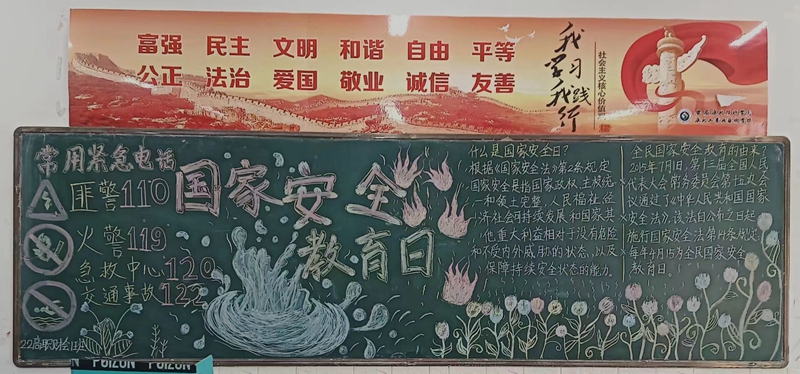 富强 民主 文明 和谐 自由 平等
公正 法治 爱国 敬业 诚信 友善
我学习我践行
社会主义核心价值
常用紧急电话
匪警110
火警119
急救中心120
交通事故122
国家安全
教育日
什么是国家安全日?
根据《国家安全法》第2条规定
国家安全是指国家政权、主权、统
一和领土完整、人民福祉、经
济社会可持续发展和国家其
他重大利益相对于没有危险
和不受内外威胁的状态,以及
保障持续安全状态的能力。
全民国家安全教育的由来?
2015年7月1日,第十二届全国人民
代表大会常务委员会第十五次会
议通过了《中华人民共和国国家
安全法》,该法自公布之日起
施行国家安全法第14条规定
每年4月15为全民国家安全
教育日。
POIZON POIZON